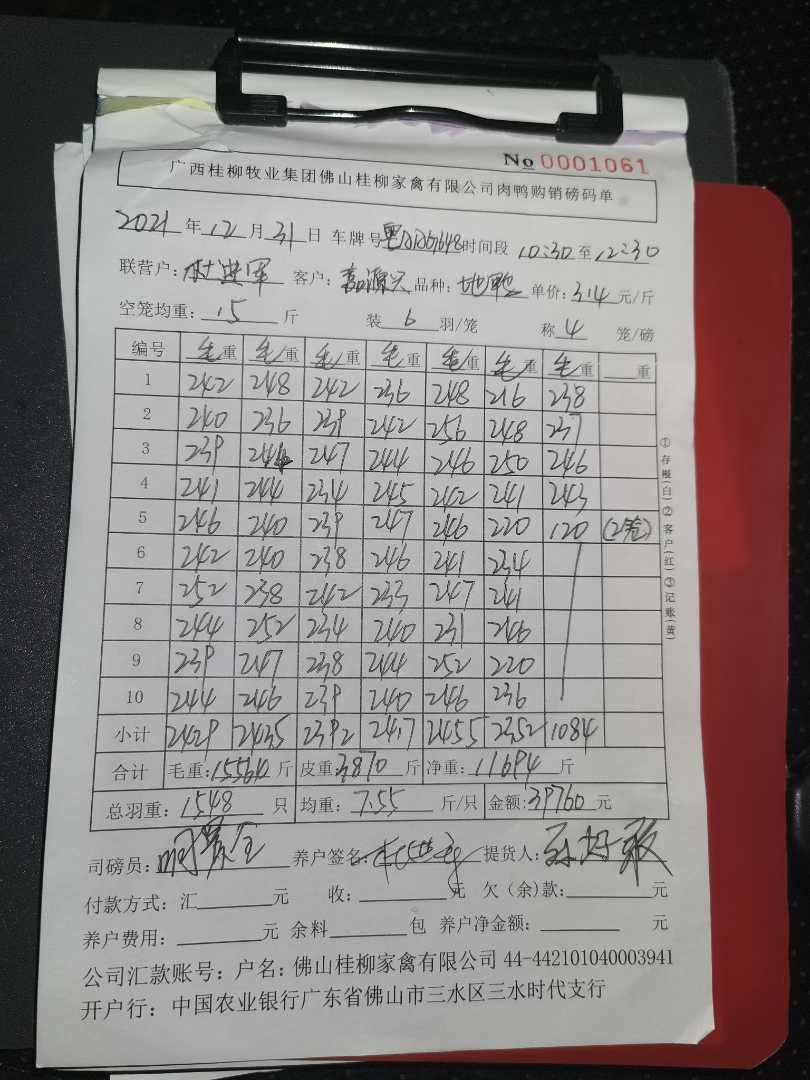 No 0001061
广西桂柳牧业集团佛山桂柳家禽有限公司肉鸭购销磅码单
2021 年 12 月 31 日 车牌号 时间段 10:30 至 12:30
联营户: 杜进军 客户: 嘉源兴 品种: 地鸭 单价: 3.14 元/斤
空笼均重: 15 斤 装 6 羽/笼 称 4 笼/磅
编号 毛重 毛重 毛重 毛重 毛重 毛重 毛重 重
1 242 248 242 236 248 216 238
2 240 236 239 242 256 248 237
3 239 244 247 244 246 250 246
4 241 244 234 245 242 241 243
5 246 240 239 247 246 220 120 (2笼)
6 242 240 238 246 241 234
7 252 238 242 233 247 241
8 244 252 234 240 231 246
9 239 247 238 244 252 220
10 244 246 239 240 246 236
小计 2429 2435 2392 2417 2455 2352 1084
合计 毛重: 15564 斤 皮重: 3870 斤 净重: 11694 斤
总羽重: 1548 只 均重: 7.55 斤/只 金额: 39760 元
司磅员: 养户签名: 提货人:
付款方式: 汇 元 收: 元 欠(余)款: 元
养户费用: 元 余料 包 养户净金额: 元
公司汇款账号: 户名: 佛山桂柳家禽有限公司 44-442101040003941
开户行: 中国农业银行广东省佛山市三水区三水时代支行
①存根(白)②客户(红)③记账(黄)